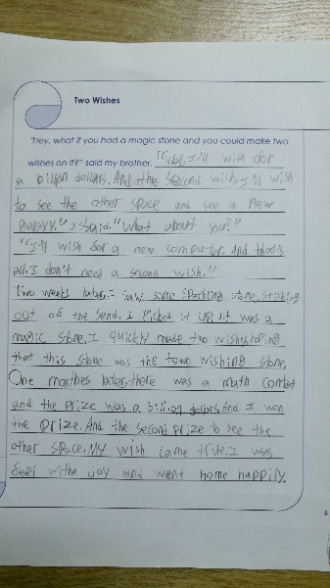 Two Wishes
"Hey, what if you had a magic stone and you could make two
wishes on it?" said my brother. "Well, I'll wish for
a billion dollars. And the second wish, I'll wish
to see the other space and see a new
galaxy." I said. "What about you?"
"I'll wish for a new computer. And that's
all. I don't need a second wish."
Two weeks later, I saw some sparkling stone, sticking
out of the sand. I picked it up. It was a
magic stone. I quickly made two wishes, hoping
that this stone was the two wishing stone.
One monthes later, there was a math contst
and the prize was a billion dollars. And I won
the prize. And the second prize to see the
other space. My wish came true. I was
with joy and went home happily.